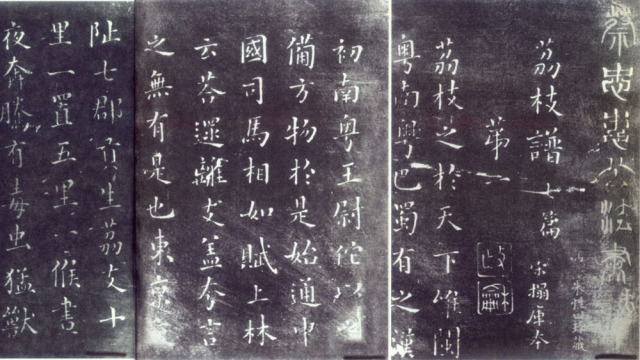 蔡忠惠公法書
荔枝譜七篇
宋搨庫本
第一
政龢
荔枝之於天下唯閩
粵南粵巴蜀有之漢
初南粵王尉佗以
備方物於是始通中
國司馬相如賦上林
云荅遝離支盖夸言
之無有是也東京
阯七郡貢生荔支十
里一置五里一候晝
夜奔騰有毒虫猛獸